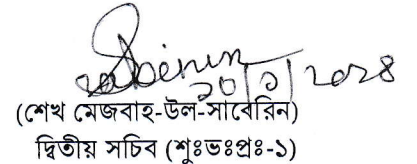 ২০/১/২০২৪
(শেখ মেজবাহ-উল-সাবেরিন)
দ্বিতীয় সচিব (শুঃভঃপ্রঃ-১)